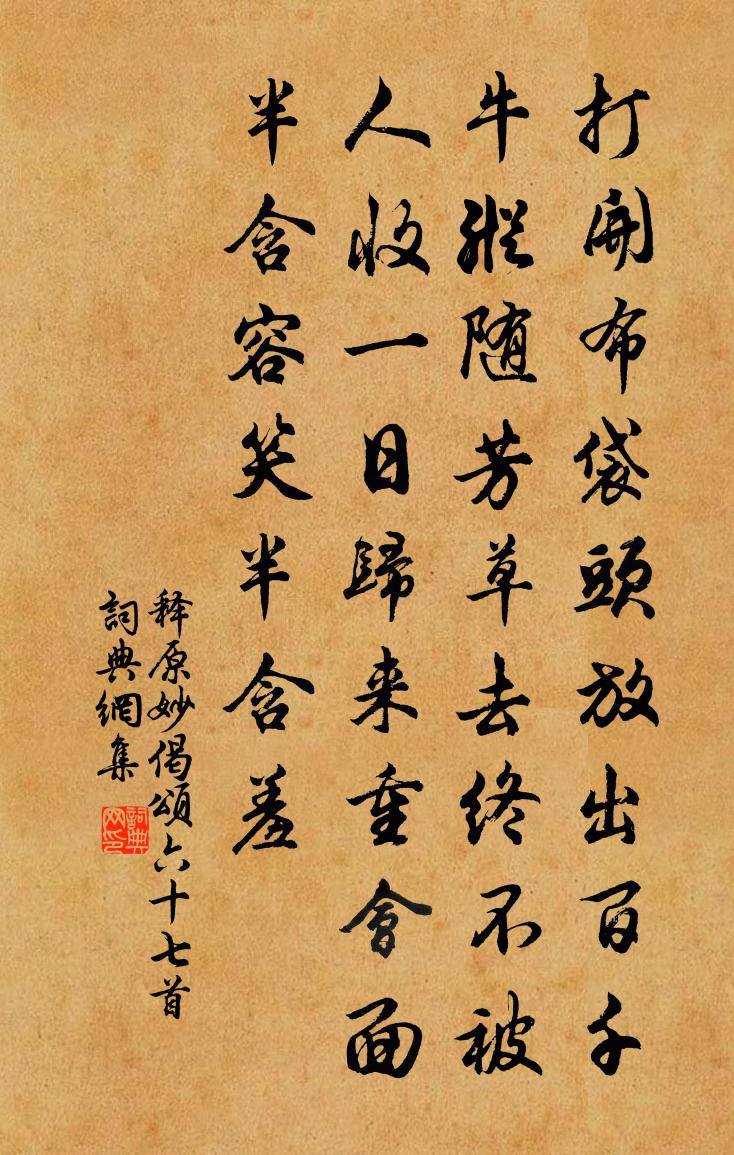 打開布袋頭放出百千
牛縱随芳草去終不被
人收一日歸来重會面
半含容笑半含羞
释原妙偈頌六十七首
詞典網集
詞典网印